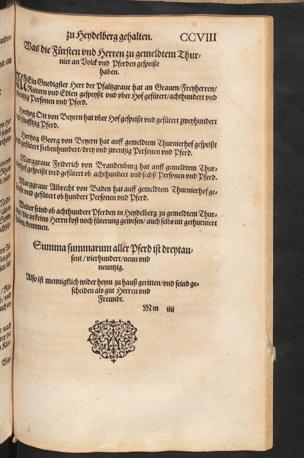 zu Heydelberg gehalten. CCVIII
Was die Fürsten vnd Herren zu gemeldtem Thur-
nier an Volck vnd Pferden gespeißt
haben.
MEin Gnedigster Herr der Pfaltzgraue hat an Grauen/Freyherren/
Rittern vnd Edlen gespeißt vnd vber Hof gefütert/achthundert vnd
Personen vnd Pferd.
Hertzog Ott von Beyern hat vber Hof gespeißt vnd gefütert zweyhundert
Personen vnd Pferd.
Hertzog Georg von Beyern hat auff gemeldtem Thurnierhof gespeißt
vnd gefütert siebenhundert/drey vnd zwentzig Personen vnd Pferd.
Marggraue Friderich von Brandenburg hat auff gemeldtem Thur-
gespeißt vnd gefütert ob achthundert vnd sechß Personen vnd Pferd.
Marggraue Albrecht von Baden hat auff gemeldtem Thurnierhof ge-
vnd gefütert ob hundert Personen vnd Pferd.
Weiter seind ob achthundert Pferden in Heydelberg zu gemeldtem Thur-
die in keins Herrn kost noch fütterung gewesen/auch selbs nit gethurniert
kommen.
Summa summarum aller Pferd ist dreytau-
sent/vierhundert/neun vnd
neuntzig.
Also ist menniglich wider heym zu hauß geritten/vnd seind ge-
scheiden als gut Herren vnd
Freundt.
Mm iiij